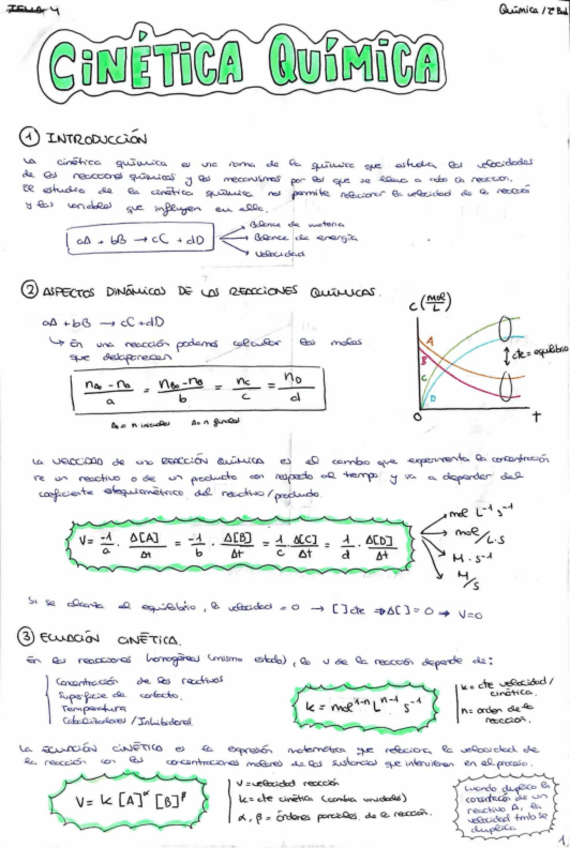 TEMA 4
Química / 2º Bach
CINÉTICA QUÍMICA
① INTRODUCCIÓN
La cinética química es una rama de la química que estudia las velocidades
de las reacciones químicas y los mecanismos por los que se lleva a cabo la reacción.
El estudio de la cinética química nos permite relacionar la velocidad de la reacción
y las variables que influyen en ella.
aA + bB → cC + dD
Balance de materia
Balance de energía
Velocidad
② ASPECTOS DINÁMICOS DE LAS REACCIONES QUÍMICAS.
aA + bB → cC + dD
↳ En una reacción podemos calcular los moles
que desaparecen
nA₀ - nA / a = nB₀ - nB / b = nC / c = nD / d
A₀ = n iniciales A = n finales
C (mol/L)
A
B
C
D
cte = equilibrio
0
T
La VELOCIDAD de una REACCIÓN QUÍMICA es el cambio que experimenta la concentración
de un reactivo o de un producto con respecto al tiempo y va a depender del
coeficiente estequiométrico del reactivo/producto.
V = -1/a · Δ[A]/Δt = -1/b · Δ[B]/Δt = 1/c · Δ[C]/Δt = 1/d · Δ[D]/Δt
mol L⁻¹ s⁻¹
mol/L·s
M · s⁻¹
M/s
Si se alcanza el equilibrio, la velocidad = 0 → [ ] cte ⇒ Δ[ ] = 0 → V=0
③ ECUACIÓN CINÉTICA.
En las reacciones homogéneas (mismo estado), la v de la reacción depende de:
Concentración de los reactivos
Superficie de contacto.
Temperatura
Catalizadores / Inhibidores.
k = mol¹⁻ⁿ Lⁿ⁻¹ s⁻¹
k = cte velocidad /
cinética.
n = orden de la
reacción.
La ECUACIÓN CINÉTICA es la expresión matemática que relaciona la velocidad de
la reacción con las concentraciones molares de las sustancias que intervienen en el proceso.
V = k [A]^α [B]^β
V = velocidad reacción
k = cte cinética (cambia unidades)
α, β = órdenes parciales de la reacción.
cuando duplico la
concentración de un
reactivo A, la
velocidad tmb se
duplica
1